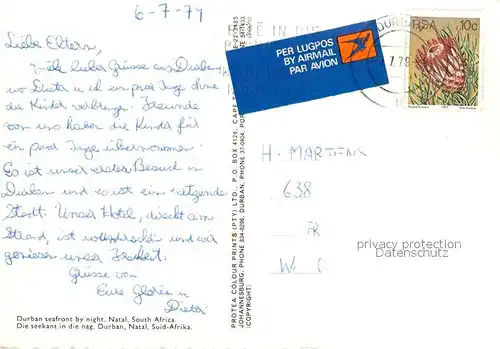 6-7-79
Liebe Eltern,
Viele liebe Grüsse aus Durban,
wo Dieter u ich ein paar Tage ohne
die Kinder verbringen. Freunde
von uns haben die Kinder für
ein paar Tage übernommen.
Es ist unser erster Besuch in
Durban und es ist ein
Stadt. Unser Hotel, direkt am
Strand, ist und wir
geniessen unser Freiheit.
Grüsse von
Eure Gloria u
Dieter
Durban seafront by night. Natal, South Africa.
Die seekant in die nag. Durban, Natal, Suid-Afrika.
PROTEA COLOUR PRINTS (PTY) LTD., P.O. BOX 4126, CAPE
JOHANNESBURG. PHONE 834-6296. DURBAN. PHONE 37-0404. POR
(COPYRIGHT)
PER LUGPOS
BY AIRMAIL
PAR AVION
DURBAN
RSA 10c
7.79
H. MARTIENS
638
W.
privacy protection
Datenschutz